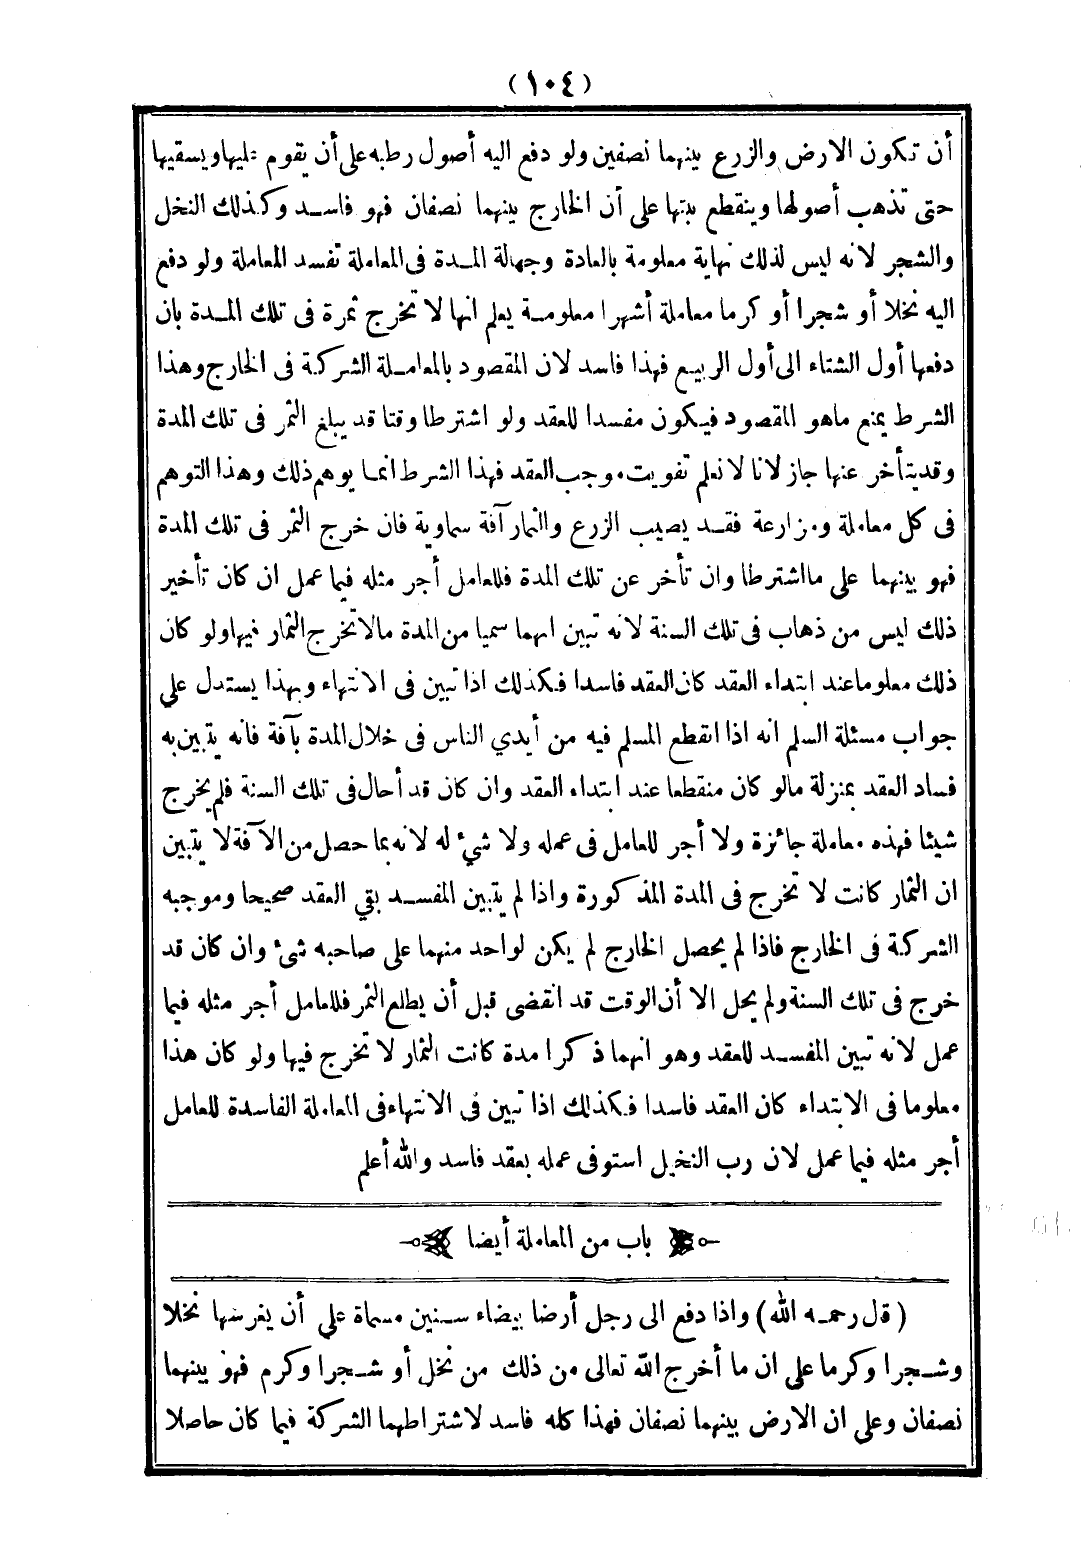 (١٠٤)
أن تكون الارض والزرع بينهما نصفين ولو دفع اليه أصول رطبه على أن يقوم عليها ويسقيها
حتى تذهب أصولها وينقطع بنتها على أن الخارج بينهما نصفان فهو فاسد وكذلك النخل
والشجر لانه ليس لذلك نهاية معلومة بالعادة وجهالة المدة في المعاملة تفسد المعاملة ولو دفع
اليه نخلا أو شجرا أو كرما معاملة أشهرا معلومة يعلم انها لا تخرج ثمرة فى تلك المدة بان
دفعها أول الشتاء الى أول الربيع فهذا فاسد لان المقصود بالمعاملة الشركة فى الخارج وهذا
الشرط يمنع ماهو المقصود فيكون مفسدا للعقد ولو اشترطا وقتا قد يبلغ الثمر فى تلك المدة
وقد يتأخر عنها جاز لانا لا نعلم تفويت موجب العقد فهذا الشرط انما يوهم ذلك وهذا التوهم
فى كل معاملة ومزارعة فقد يصيب الزرع والثمار آفة سماوية فان خرج الثمر فى تلك المدة
فهو بينهما على مااشترطا وان تأخر عن تلك المدة فللعامل أجر مثله فيما عمل ان كان تأخير
ذلك ليس من ذهاب فى تلك السنة لانه تبين انهما سميا من المدة مالا تخرج الثمار فيها ولو كان
ذلك معلوما عند ابتداء العقد كان العقد فاسدا فكذلك اذا تبين فى الانتهاء وبهذا يستدل على
جواب مسئلة السلم انه اذا انقطع المسلم فيه من أيدي الناس فى خلال المدة بآفة فانه يتبين به
فساد العقد بمنزلة مالو كان منقطعا عند ابتداء العقد وان كان قد أحال فى تلك السنة فلم يخرج
شيئا فهذه معاملة جائزة ولا أجر للعامل فى عمله ولا شيء له لانه بما حصل من الآفة لا يتبين
ان الثمار كانت لا تخرج فى المدة المذكورة واذا لم يتبين المفسد بقي العقد صحيحا وموجبه
الشركة فى الخارج فاذا لم يحصل الخارج لم يكن لواحد منهما على صاحبه شئ وان كان قد
خرج فى تلك السنة ولم يحل الا أن الوقت قد انقضى قبل أن يطلع الثمر فللعامل أجر مثله فيما
عمل لانه تبين المفسد للعقد وهو انهما ذكرا مدة كانت الثمار لا تخرج فيها ولو كان هذا
معلوما فى الابتداء كان العقد فاسدا فكذلك اذا تبين فى الانتهاء فى المعاملة الفاسدة للعامل
أجر مثله فيما عمل لان رب النخيل استوفى عمله بعقد فاسد والله أعلم
باب من المعاملة أيضا
(قال رحمه الله) واذا دفع الى رجل أرضا بيضاء سنين مسماة على أن يغرسها نخلا
وشجرا وكرما على ان ما أخرج الله تعالى من ذلك من نخل أو شجرا وكرم فهو بينهما
نصفان وعلى ان الارض بينهما نصفان فهذا كله فاسد لاشتراطهما الشركة فيما كان حاصلا